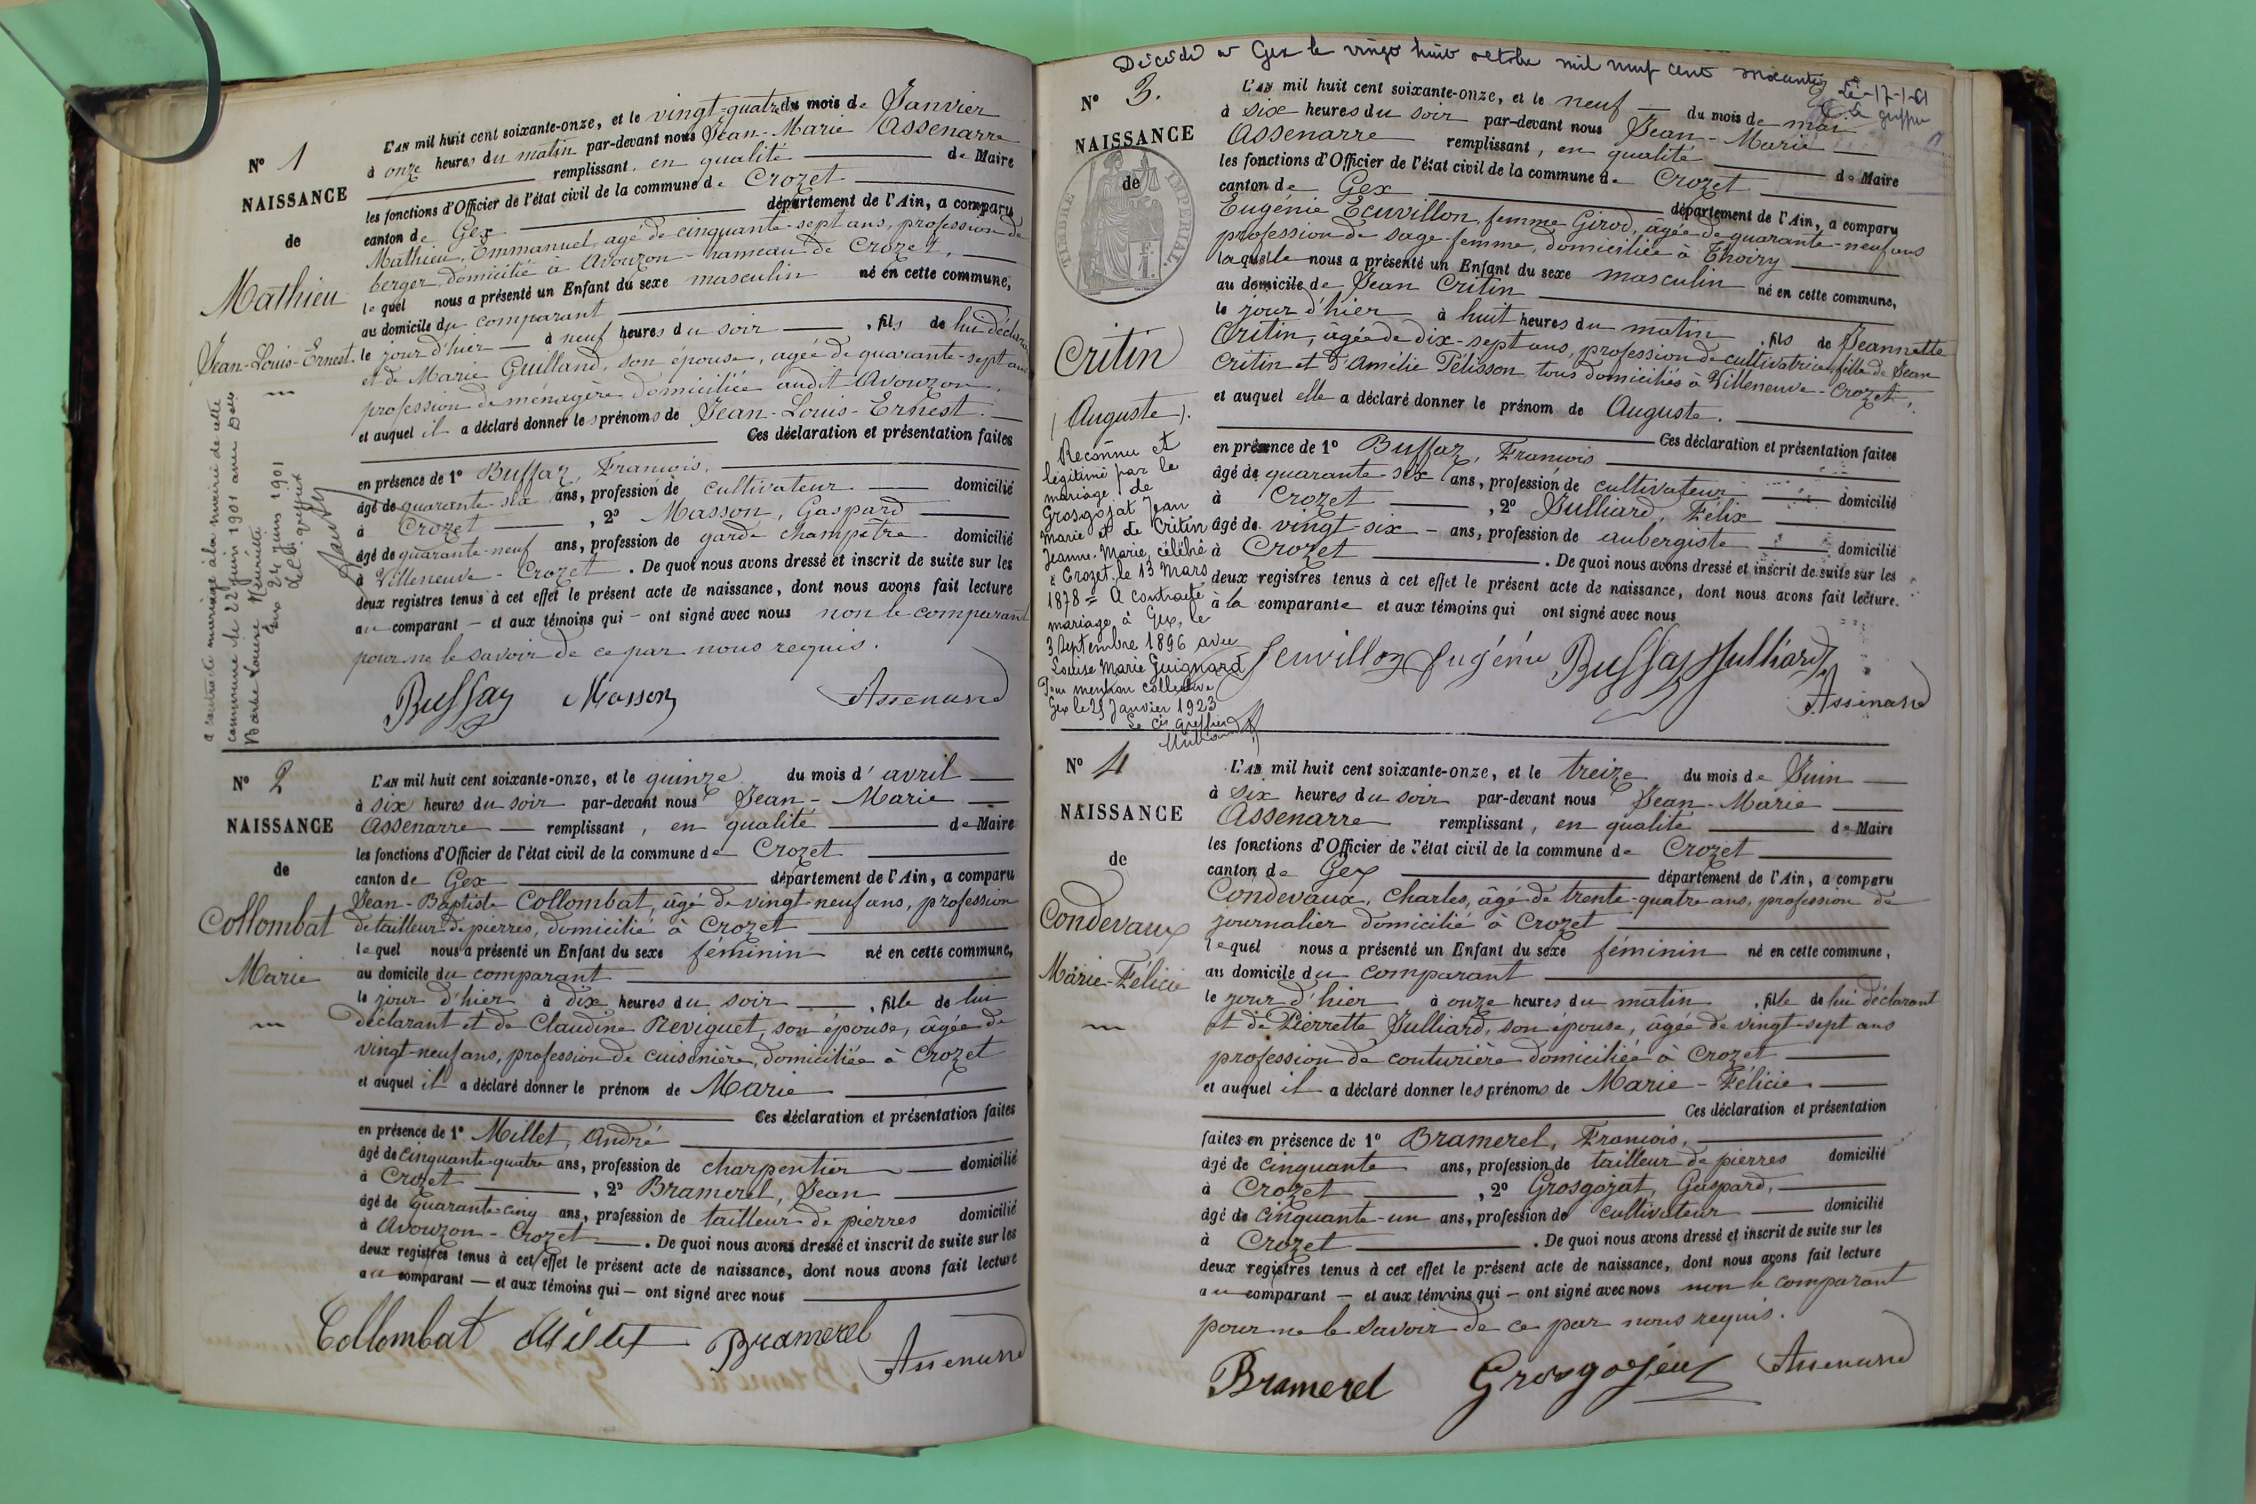 L'AN mil huit cent soixante-onze, et le vingt-quatre du mois de Janvier
N° 1
à onze heures du matin par-devant nous Jean-Marie Assenarre
NAISSANCE
remplissant, en qualité de Maire
les fonctions d'Officier de l'état civil de la commune de Crozet
de
canton de Gex département de l'Ain, a comparu
Mathieu, Emmanuel, agé de cinquante-sept ans, profession de
berger, domicilié à Avouzon-hameau de Crozet,
Mathieu
lequel nous a présenté un Enfant du sexe masculin né en cette commune,
au domicile du comparant
Jean-Louis-Ernest.
le jour d'hier à neuf heures du soir, fils de lui déclarant
et de Marie Guilland, son épouse, agée de quarante-sept ans
profession de ménagère domiciliée audit Avouzon.
et auquel il a déclaré donner les prénoms de Jean-Louis-Ernest.
Ces déclaration et présentation faites
en présence de 1° Buffaz, François,
âgé de quarante-six ans, profession de cultivateur domicilié
à Crozet, 2° Masson, Gaspard
âgé de quarante-neuf ans, profession de garde champêtre domicilié
à Villeneuve-Crozet. De quoi nous avons dressé et inscrit de suite sur les
deux registres tenus à cet effet le présent acte de naissance, dont nous avons fait lecture
au comparant — et aux témoins qui — ont signé avec nous non le comparant
pour ne le savoir de ce par nous requis.
Buffaz Masson Assenarre
a contracté mariage à la mairie de cette
commune le 22 juin 1901 avec Delle
Barbe Louise Henriette
Gex 24 juin 1901
Le C. greffier
N° 2
L'AN mil huit cent soixante-onze, et le quinze du mois d'avril
à six heures du soir par-devant nous Jean-Marie
NAISSANCE
Assenarre remplissant, en qualité de Maire
les fonctions d'Officier de l'état civil de la commune de Crozet
de
canton de Gex département de l'Ain, a comparu
Jean-Baptiste Collombat, âgé de vingt-neuf ans, profession
Collombat
de tailleur de pierres, domicilié à Crozet
lequel nous a présenté un Enfant du sexe féminin né en cette commune,
Marie
au domicile du comparant
le jour d'hier à dix heures du soir, fille de lui
déclarant et de Claudine Reviguet, son épouse, âgée de
vingt-neuf ans, profession de cuisinière, domiciliée à Crozet
et auquel il a déclaré donner le prénom de Marie
Ces déclaration et présentation faites
en présence de 1° Millet, André
âgé de cinquante-quatre ans, profession de charpentier domicilié
à Crozet, 2° Bramerel, Jean
âgé de Quarante-cinq ans, profession de tailleur de pierres domicilié
à Avouzon-Crozet. De quoi nous avons dressé et inscrit de suite sur les
deux registres tenus à cet effet le présent acte de naissance, dont nous avons fait lecture
au comparant — et aux témoins qui — ont signé avec nous
Collombat Millet Bramerel Assenarre
Décédé à Gex le vingt huit octobre mil neuf cent soixante
Le 17-1-61
Le greffier
N° 3.
L'AN mil huit cent soixante-onze, et le neuf du mois de mai
à six heures du soir par-devant nous Jean-Marie
NAISSANCE
Assenarre remplissant, en qualité de Maire
les fonctions d'Officier de l'état civil de la commune de Crozet
de
TIMBRE IMPERIAL.
canton de Gex département de l'Ain, a comparu
Eugénie Ecuvillon, femme Girod, âgée de quarante-neuf ans
profession de sage-femme, domiciliée à Thoiry
laquelle nous a présenté un Enfant du sexe masculin né en cette commune,
au domicile de Jean Critin
le jour d'hier à huit heures du matin, fils de Jeannette
Critin
Critin, âgée de dix-sept ans, profession de cultivatrice, fille de Jean
Critin et d'Amélie Pélisson tous domiciliés à Villeneuve-Crozet,
(Auguste).
et auquel elle a déclaré donner le prénom de Auguste.
Ces déclaration et présentation faites
en présence de 1° Buffaz, François
âgé de quarante six ans, profession de cultivateur domicilié
à Crozet, 2° Julliard, Félix
âgé de vingt-six — ans, profession de aubergiste domicilié
à Crozet. De quoi nous avons dressé et inscrit de suite sur les
deux registres tenus à cet effet le présent acte de naissance, dont nous avons fait lecture.
à la comparante et aux témoins qui ont signé avec nous
Ecuvillon Eugénie Buffaz Julliard
Assenarre
Reconnu et
légitimé par le
mariage de
Grosgojat Jean
Marie et de Critin
Jeanne-Marie, célébré
à Crozet, le 13 Mars
1878 = A contracté
mariage, à Gex, le
3 septembre 1896 avec
Louise Marie Guignard
Pour mention collective
Gex le 25 Janvier 1923
Le Cis greffier
N° 4
L'AN mil huit cent soixante-onze, et le treize du mois de Juin
à six heures du soir par-devant nous Jean-Marie
NAISSANCE
Assenarre remplissant, en qualité de Maire
les fonctions d'Officier de l'état civil de la commune de Crozet
de
canton de Gex département de l'Ain, a comparu
Condevaux, Charles, âgé de trente-quatre ans, profession de
Condevaux
journalier domicilié à Crozet
lequel nous a présenté un Enfant du sexe féminin né en cette commune,
Marie-Félicie
au domicile du comparant
le jour d'hier à onze heures du matin, fille de lui déclarant
et de Pierrette Julliard, son épouse, âgée de vingt-sept ans
profession de couturière domiciliée à Crozet
et auquel il a déclaré donner les prénoms de Marie-Félicie
Ces déclaration et présentation
faites en présence de 1° Bramerel, François,
âgé de cinquante ans, profession de tailleur de pierres domicilié
à Crozet, 2° Grosgojat, Gaspard,
âgé de cinquante-un ans, profession de cultivateur domicilié
à Crozet. De quoi nous avons dressé et inscrit de suite sur les
deux registres tenus à cet effet le présent acte de naissance, dont nous avons fait lecture
au comparant — et aux témoins qui — ont signé avec nous non le comparant
pour ne le savoir de ce par nous requis.
Bramerel Grosgojeat Assenarre